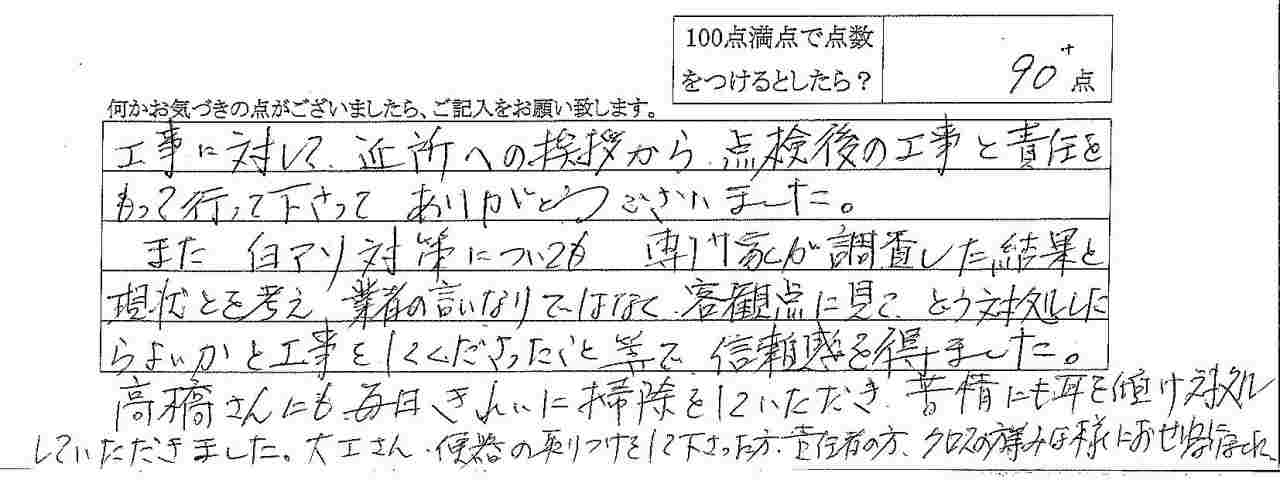 100点満点で点数
をつけるとしたら？
90⁺点
何かお気づきの点がございましたら、ご記入をお願い致します。
工事に対して、近所への挨拶から、点検後の工事と責任を
もって行って下さって ありがとうございました。
また 白アリ対策についても 専門家が調査した結果と
現状とを考え、業者の言いなりではなく、客観点に見て、どう対処した
らよいかと工事をしてくださったこと等で、信頼感を得ました。
高橋さんにも毎日きれいに掃除をしていただき、苦情にも耳を傾け対処
していただきました。大工さん、便器の取りつけをして下さった方、責任者の方、クロスの